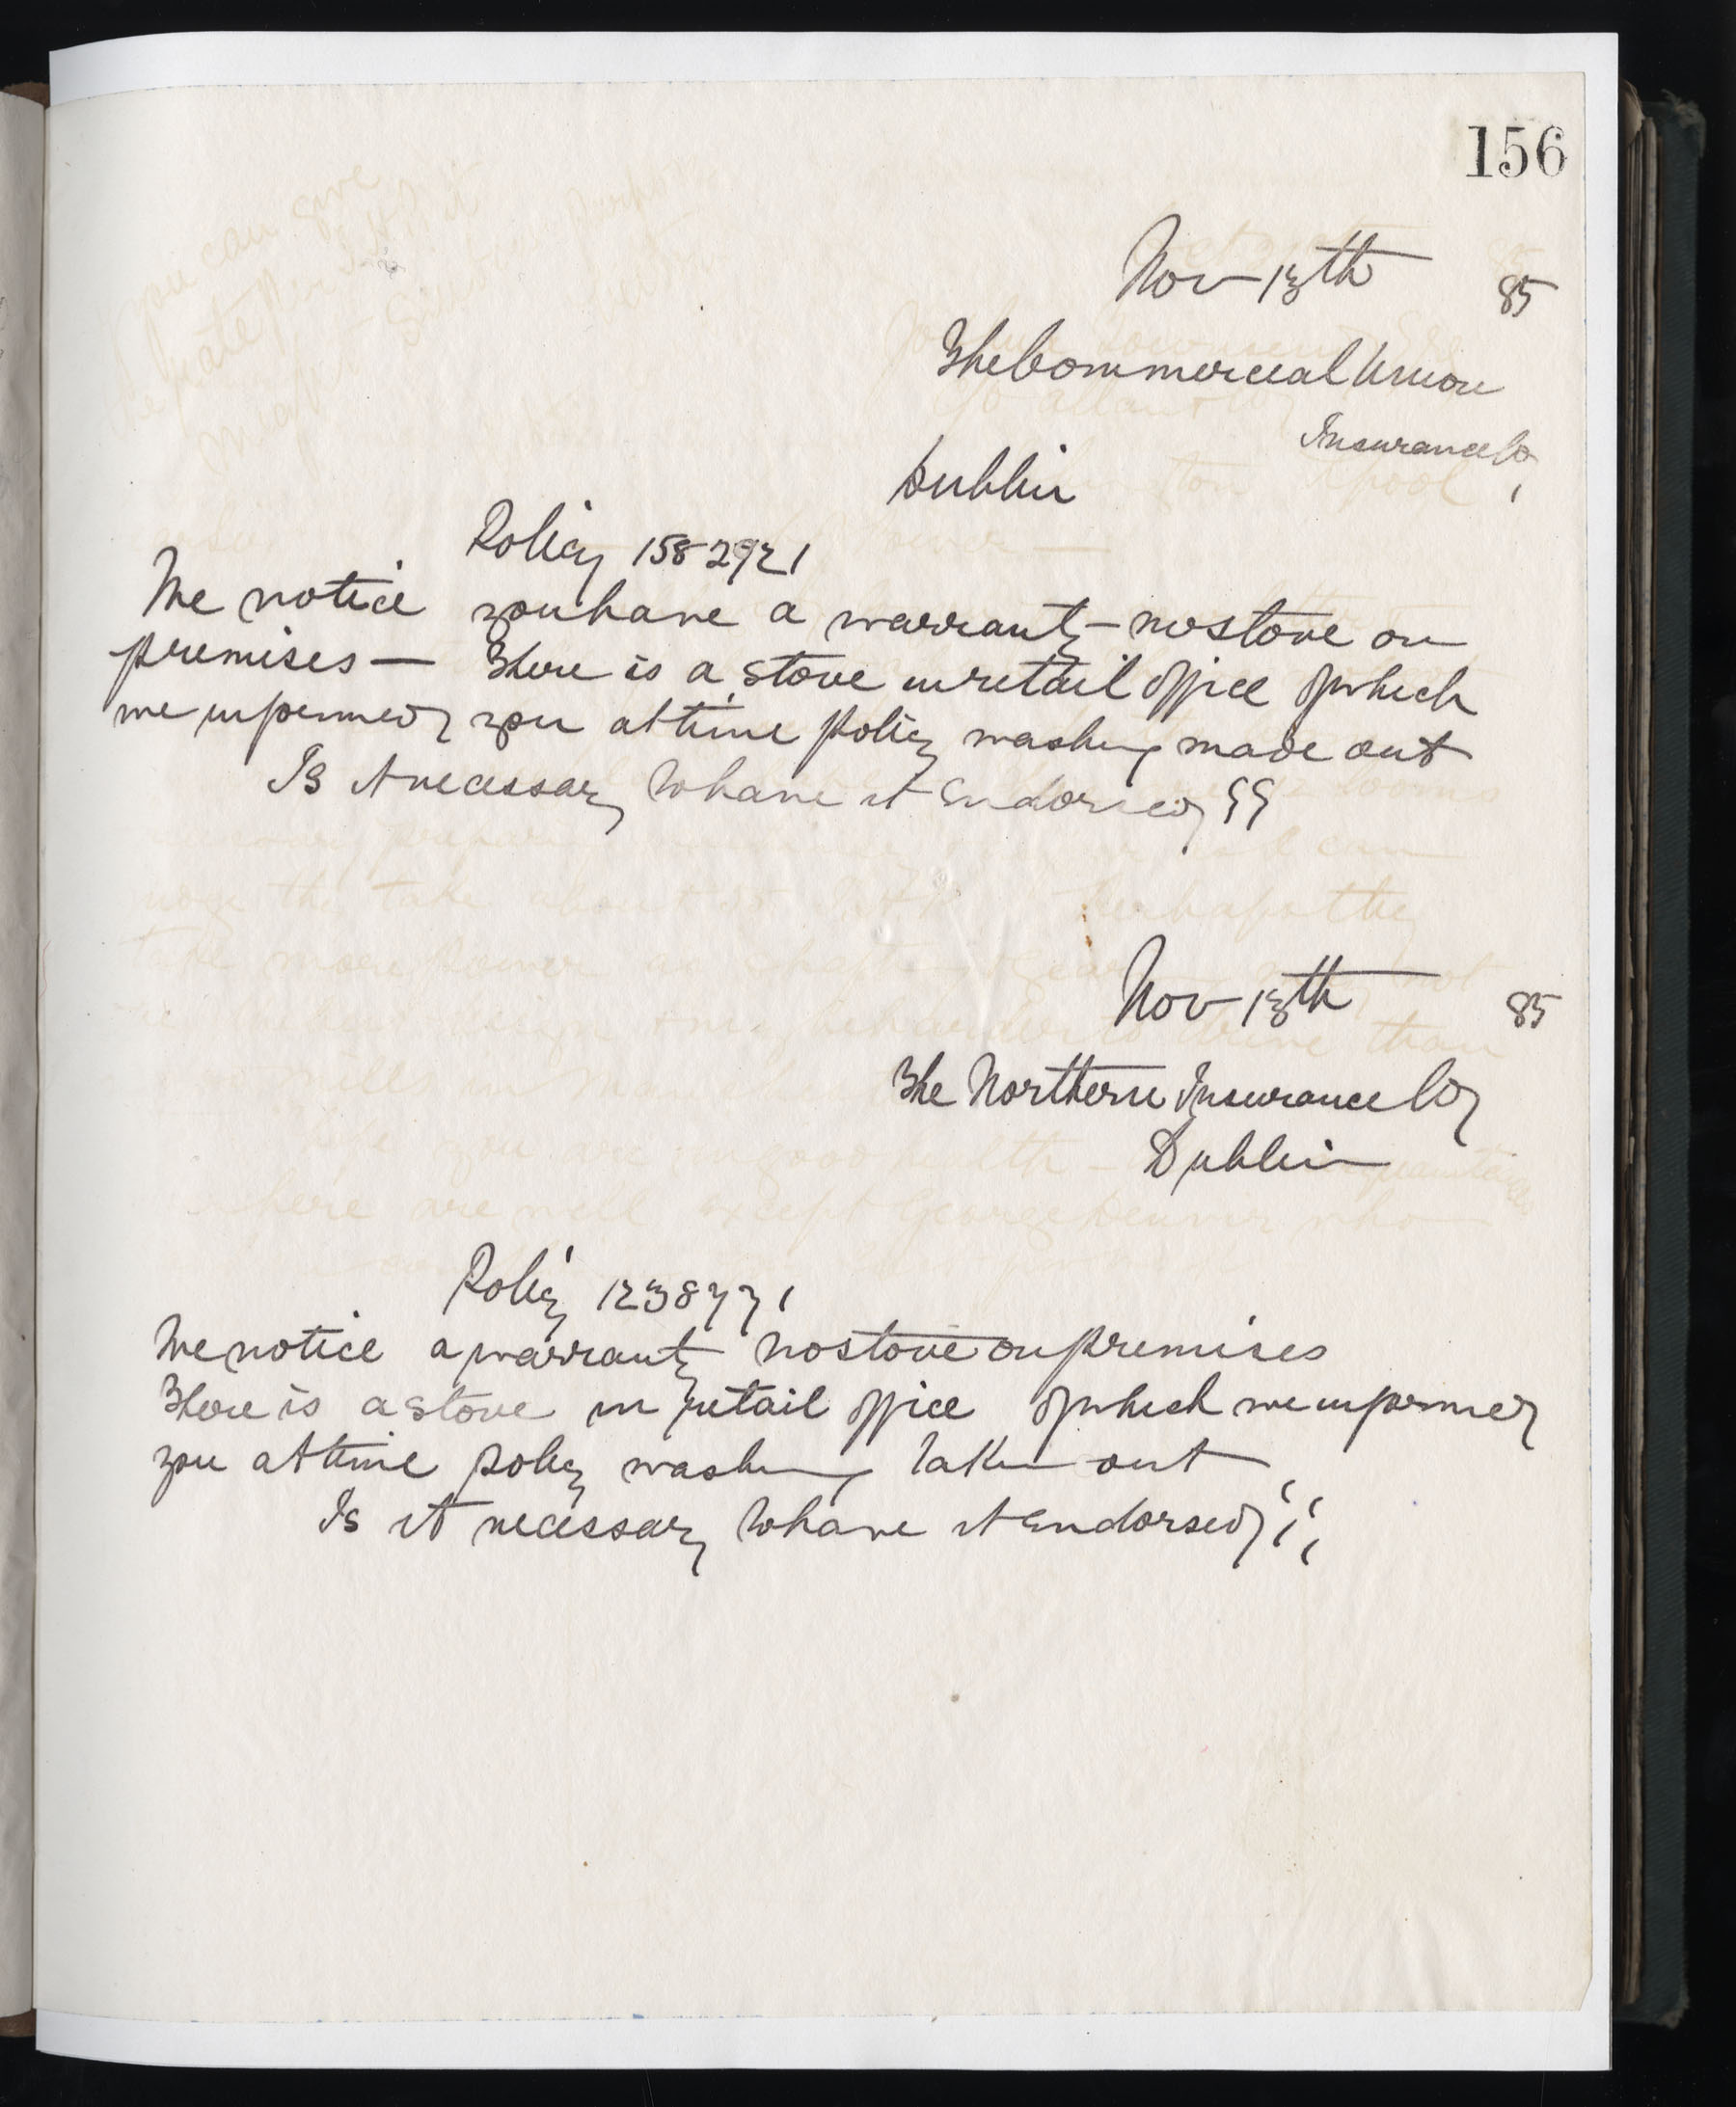 156
Nov 13th 85
The Commercial Union
Insurance Co
Dublin
Policy 1582921
We notice you have a warranty — no stove on
premises — There is a stove in retail office of which
we informed you at time policy was being made out
Is it necessary to have it Endorsed ??
Nov 13th 85
The Northern Insurance Co
Dublin
Policy 1238771
We notice a warranty no stove on premises
There is a stove in retail office of which we informed
you at time policy was being taken out
Is it necessary to have it Endorsed ??